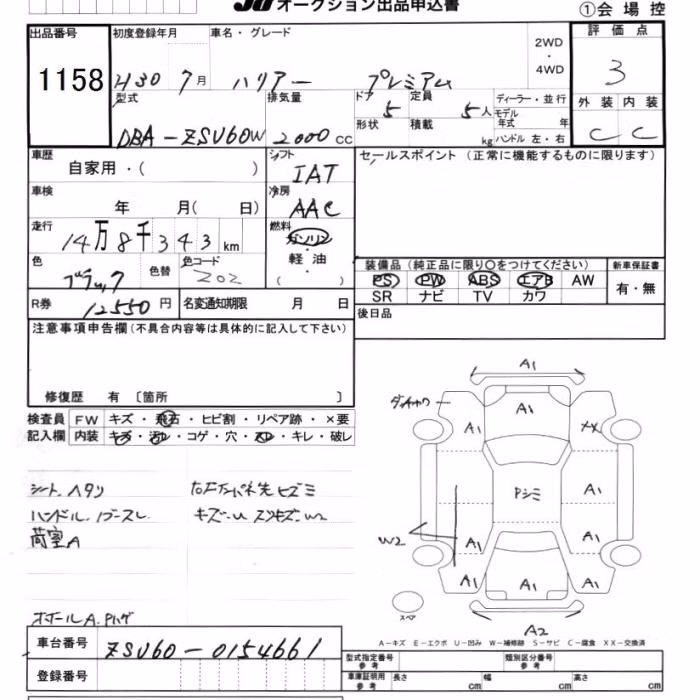 JU オークション出品申込書
①会場控
出品番号
1158
初度登録年月
H30 7月
車名・グレード
ハリアー プレミアム
2WD
・
4WD
評価点
3
型式
DBA-ZSU60W
排気量
2000cc
ドア
5
定員
5人
ディーラー・並行
モデル年式 年
形状
積載
kg
ハンドル 左・右
外装 内装
C C
車歴
自家用・( )
シフト
IAT
セールスポイント (正常に機能するものに限ります)
車検
年 月( 日)
冷房
AAC
走行
14万8千343km
燃料
ガソリン
軽油
( )
色
ブラック
色替
色コード
202
装備品(純正品に限り○をつけてください)
PS PW ABS エアB AW
SR ナビ TV カワ
新車保証書
有・無
R券
12550円
名変通知期限 月 日
後日品
注意事項申告欄(不具合内容等は具体的に記入して下さい)
修復歴 有 〔箇所 〕
検査員
記入欄
FW キズ・飛石・ヒビ割・リペア跡・×要
内装 キズ・汚れ・コゲ・穴・スレ・キレ・破レ
シート.ヘタリ
ハンドル.ノブスレ
荷室A
キズ-U スリキズ.W2
ホイールA.Pハゲ
A1
A1
A1
XX
Pシミ
A1
A1
A1
W2
A1
A1
A1
A2
スペア
A-キズ E-エクボ U-凹み W-補修跡 S-サビ C-腐食 XX-交換済
車台番号
ZSU60-0154661
登録番号
型式指定番号
参考
類別区分番号
参考
車庫証明用
参考
長さ cm 幅 cm 高さ cm